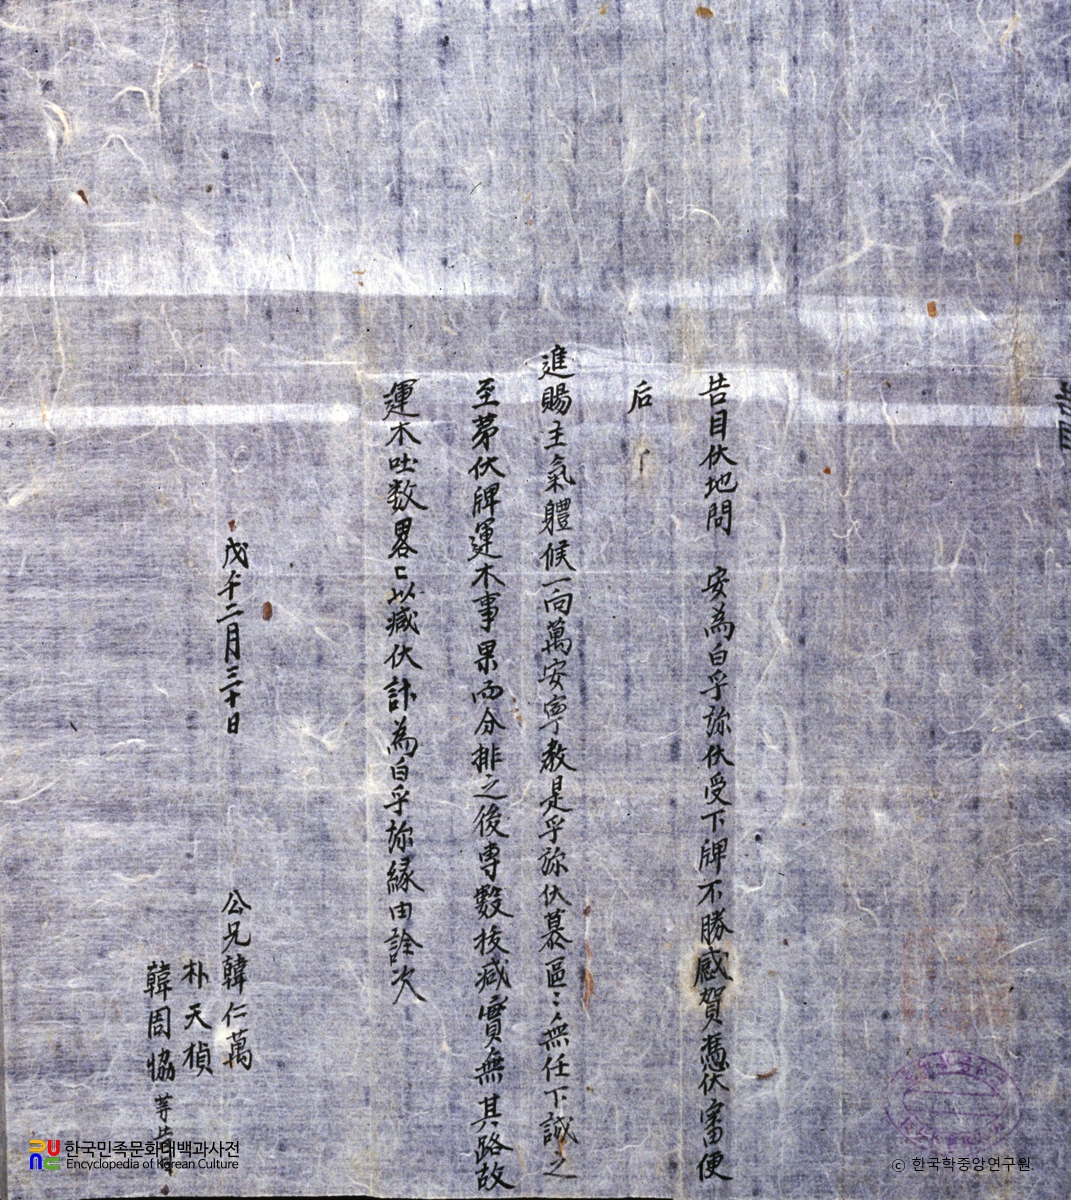 告目
告目伏地問 安為白乎旀伏受下牌不勝感賀憑伏審便
后
進賜主氣體候一向萬安寧教是乎旀伏慕區〻無任下誠之
至苐伏牌運木事果而分排之後専數拔减實無其路故
運木吐数畧〻以减伏計為白乎旀緣由詮次
戊午二月三十日
公兄韓仁萬
朴天楨
韓周恊等告目
한국민족문화대백과사전
Encyclopedia of Korean Culture
© 한국학중앙연구원